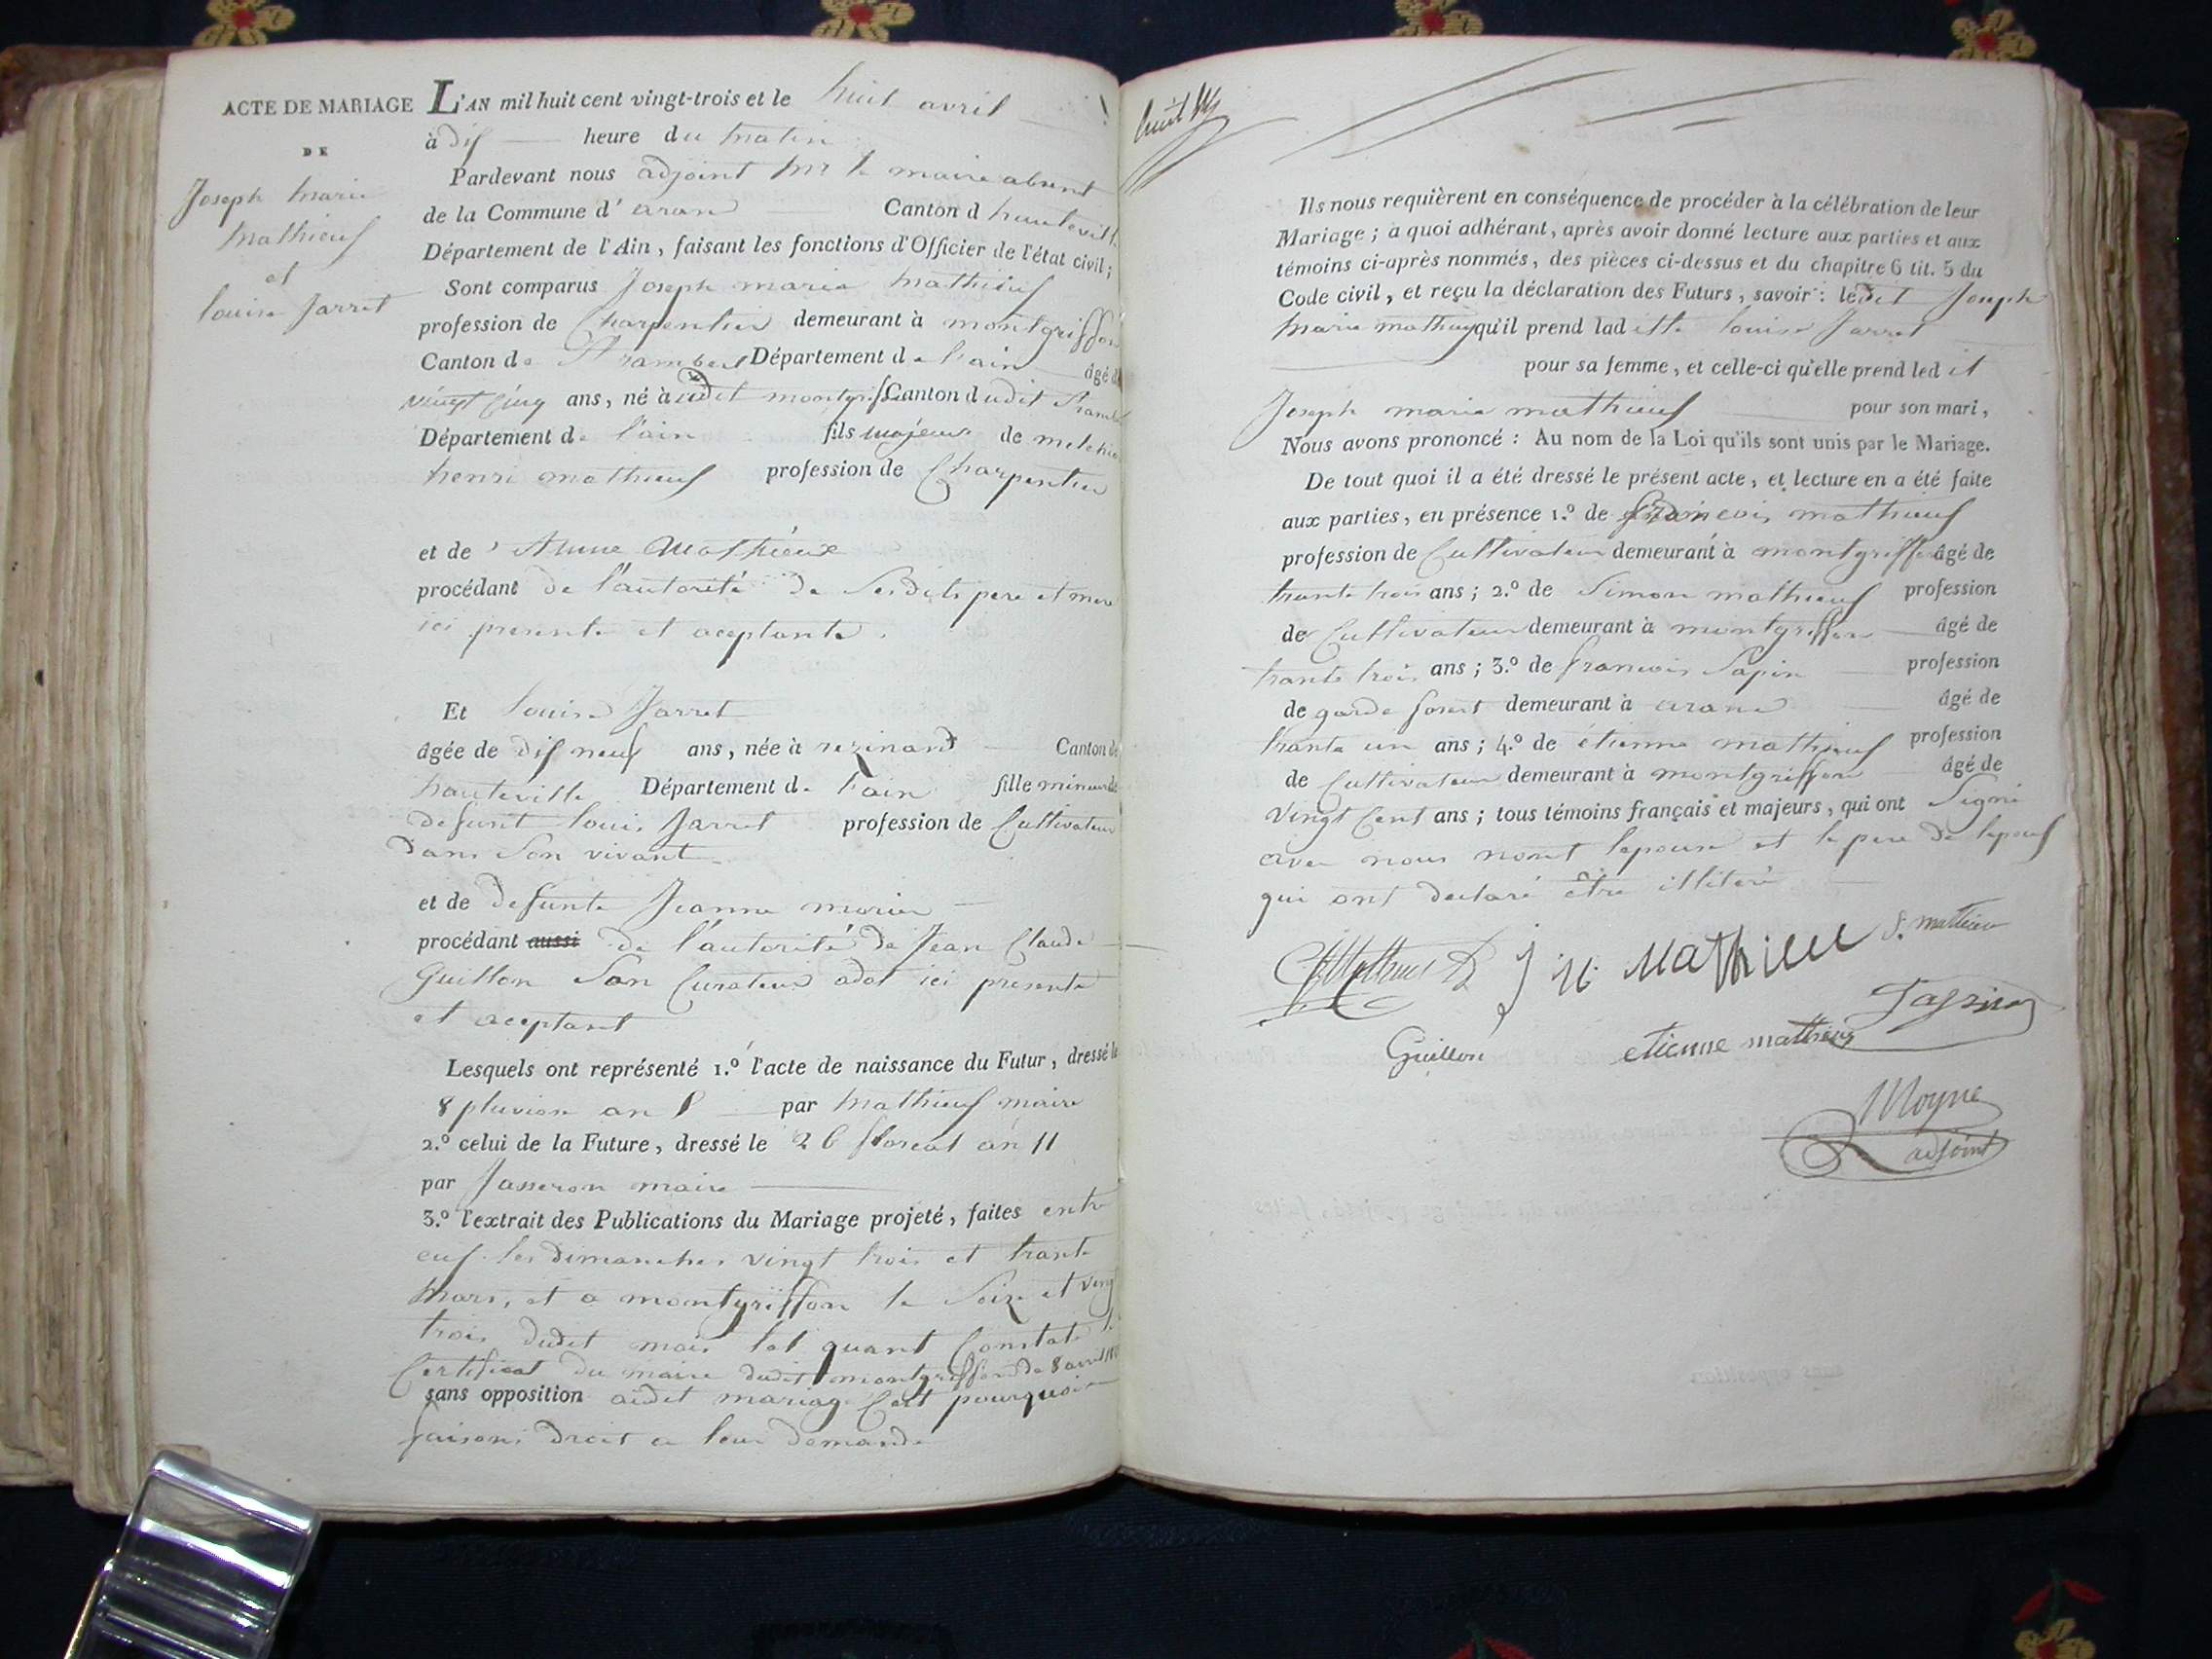 ACTE DE MARIAGE
DE
Joseph marie
mathieux
et
louise Jarret
L'AN mil huit cent vingt-trois et le huit avril
à dix heure du matin
Pardevant nous adjoint mr le maire absent
de la Commune d'aran Canton d hauteville
Département de l'Ain, faisant les fonctions d'Officier de l'état civil;
Sont comparus Joseph marie mathieux
profession de Charpentier demeurant à montgriffon
Canton de St rambert Département de l'ain âgé de
vingt cinq ans, né à udit montgriffon Canton dudit St rambert
Département de l'ain fils majeur de melchior
henri mathieux profession de Charpentier
et de Anne Mathieux
procédant de l'autorité de Sesdits pere et mere
ici presente et aceptante.
Et louise Jarret
âgée de dix neuf ans, née à rezinand Canton de
hauteville Département de l'ain fille mineure de
defunt louis Jarret profession de Cultivateur
dans Son vivant
et de defunte Jeanne morier
procédant aussi de l'autorité de Jean Claude
Guillon Son Curateur adot ici presente
et aceptant
Lesquels ont représenté 1.º l'acte de naissance du Futur, dressé le
8 pluviose an par mathieux maire
2.º celui de la Future, dressé le 26 floreal an 11
par Jasseron maire
3.º l'extrait des Publications du Mariage projeté, faites entre
eux les dimanches vingt trois et trante
mars, et a montgriffon le Seize et vingt
trois dudit mois tel quant Constate le
Certificat du maire dudit montgriffon de 8 avril
sans opposition audit mariage C'est pourquoi
faisons droit a leur demande
Ils nous requièrent en conséquence de procéder à la célébration de leur
Mariage; à quoi adhérant, après avoir donné lecture aux parties et aux
témoins ci-après nommés, des pièces ci-dessus et du chapitre 6 tit. 5 du
Code civil, et reçu la déclaration des Futurs, savoir: ledit Joseph
marie mathieux qu'il prend ladite louise Jarret
pour sa femme, et celle-ci qu'elle prend ledit
Joseph marie mathieux pour son mari,
Nous avons prononcé: Au nom de la Loi qu'ils sont unis par le Mariage.
De tout quoi il a été dressé le présent acte, et lecture en a été faite
aux parties, en présence 1.º de francois mathieux
profession de Cultivateur demeurant à montgriffon âgé de
trante trois ans; 2.º de Simon mathieux profession
de Cultivateur demeurant à montgriffon âgé de
trante trois ans; 3.º de francois Sapin profession
de garde forest demeurant à arane âgé de
trante un ans; 4.º de étienne mathieux profession
de Cultivateur demeurant à montgriffon âgé de
vingt Cent ans; tous témoins français et majeurs, qui ont Signé
avec nous nont lepouse et le pere de lepoux
qui ont declaré être illiteré
J M MATHIEU S. mathieu
Guillon etienne mathieux
Moyne
adjoint